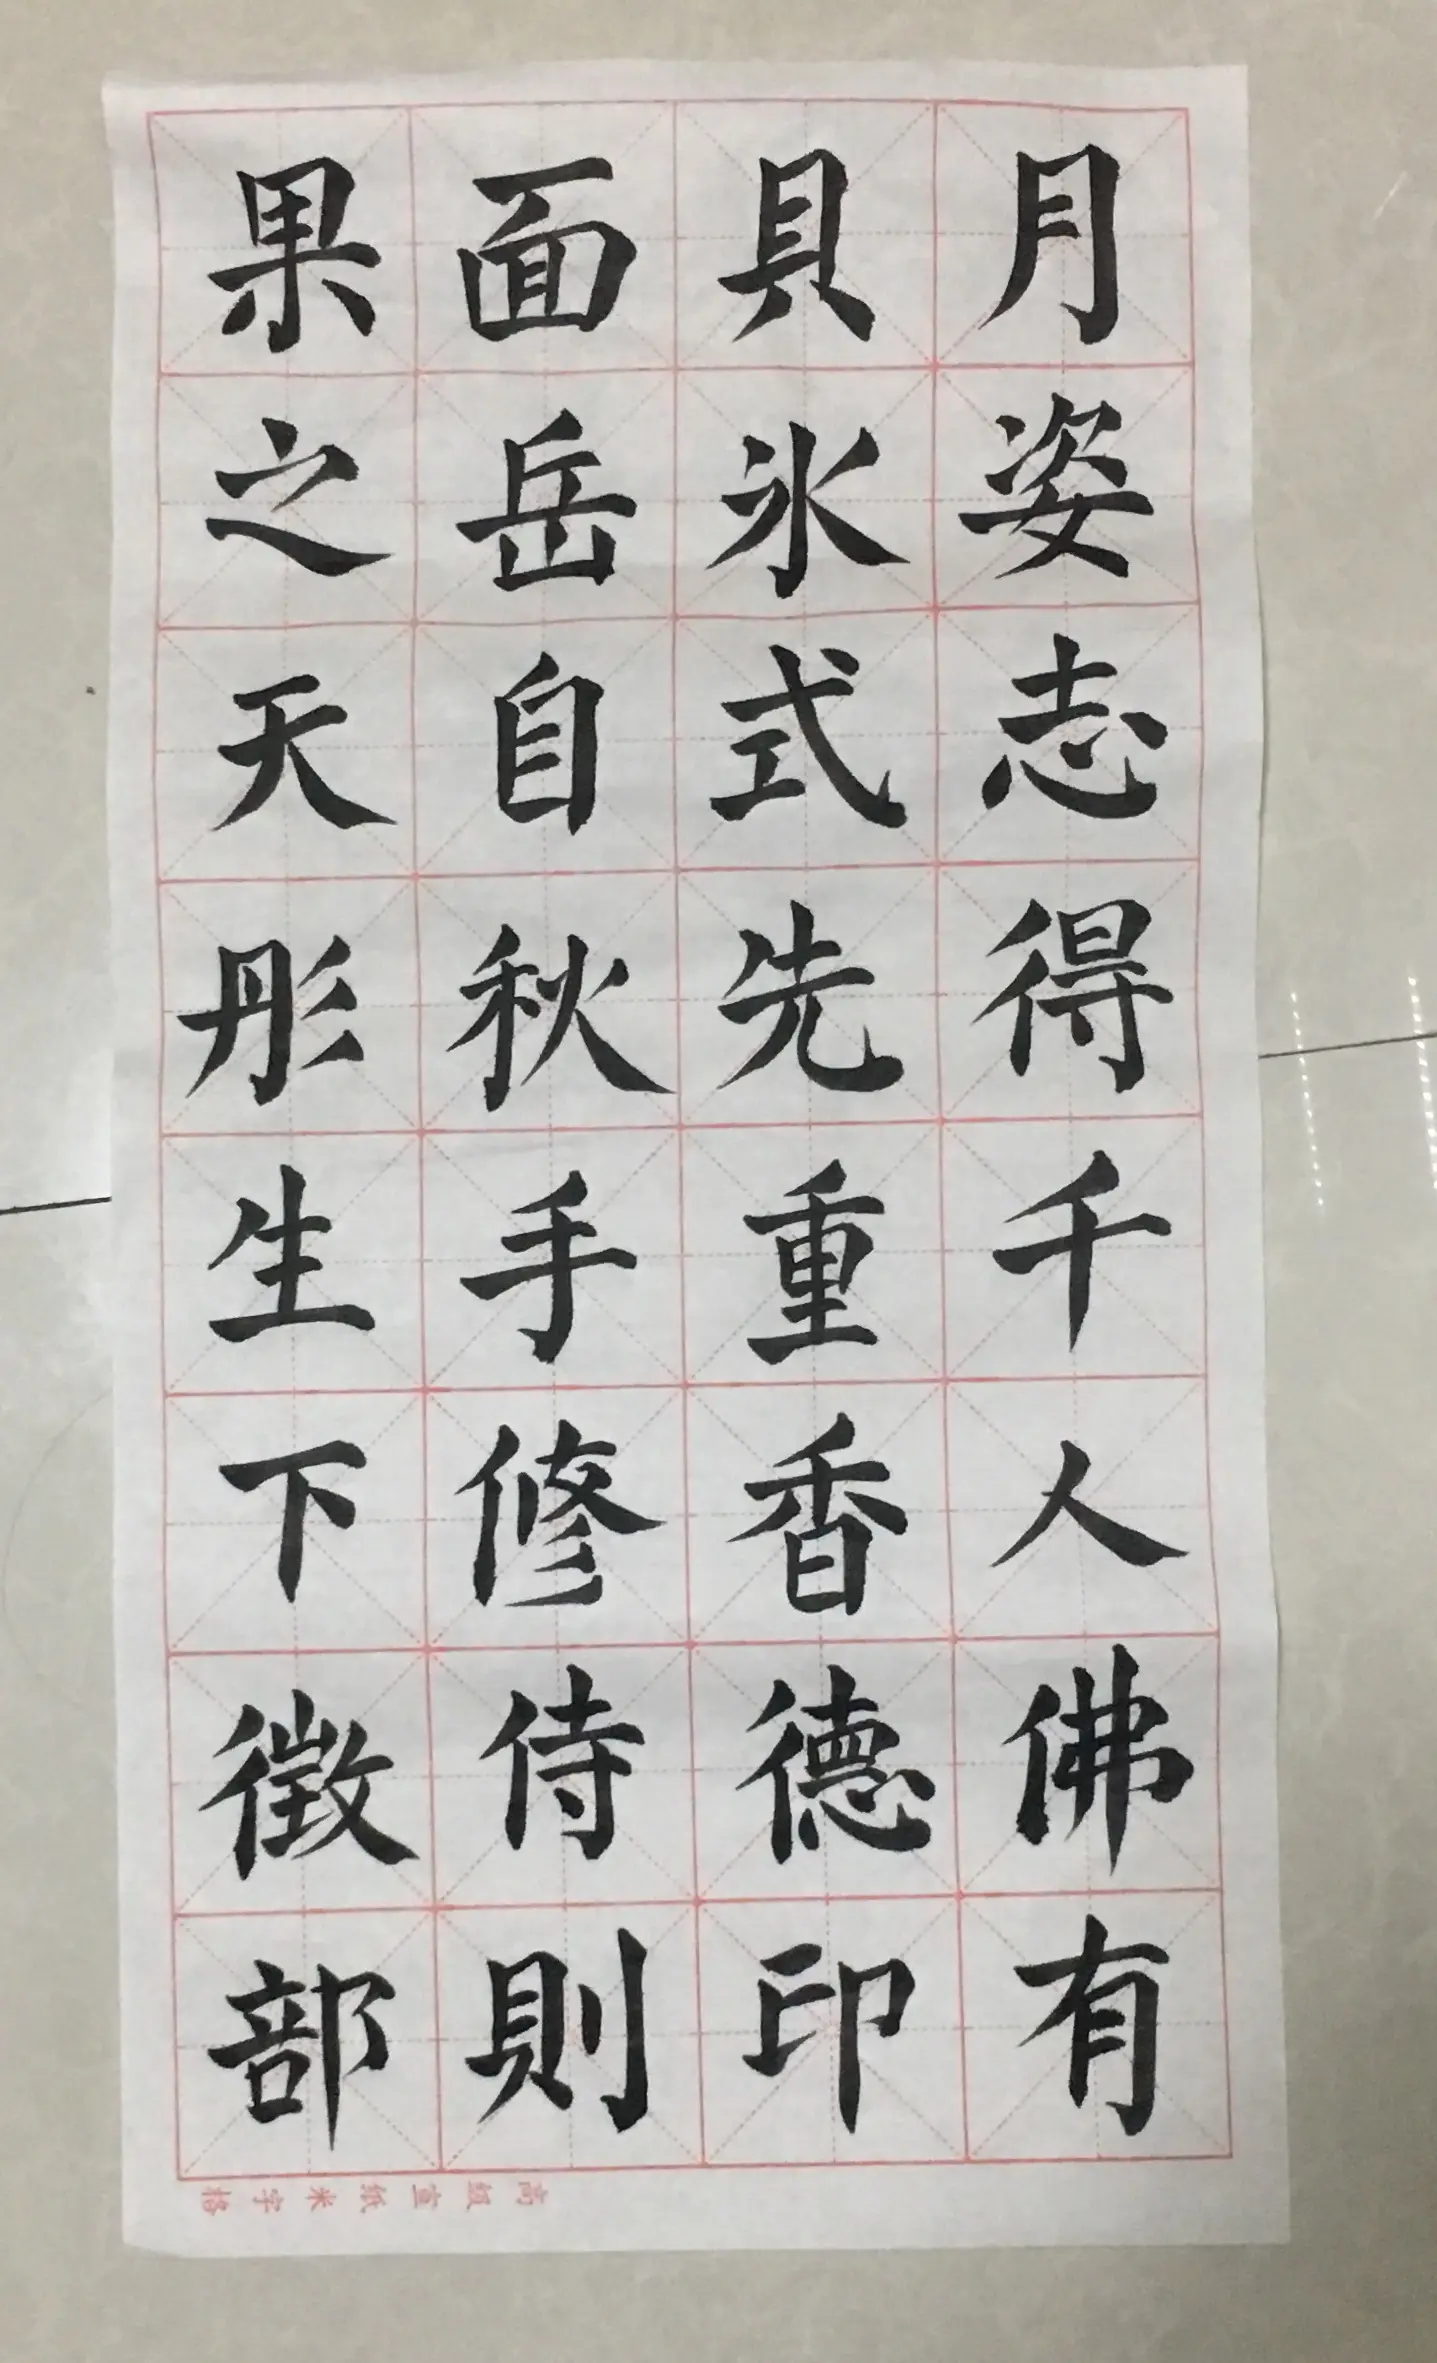 月姿志得千人佛有
具氷式先重香德印
面岳自秋手修侍則
果之天彤生下徵部
高級宣纸米字格